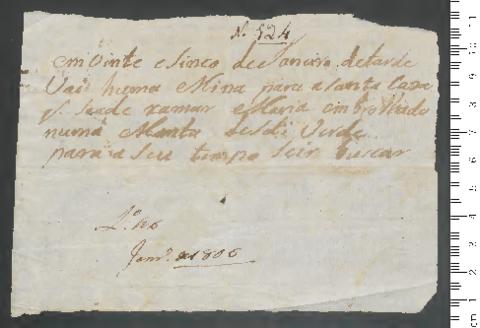 N. 524
em Vinte e sinco de Janeiro de tarde
Vai huma Minina para a Santa Caza
q. se ade xamar Maria embrolhado
numa Manta desdi Verde
para a seu tempo se ir buscar
L.º 16
Janr.º 1806